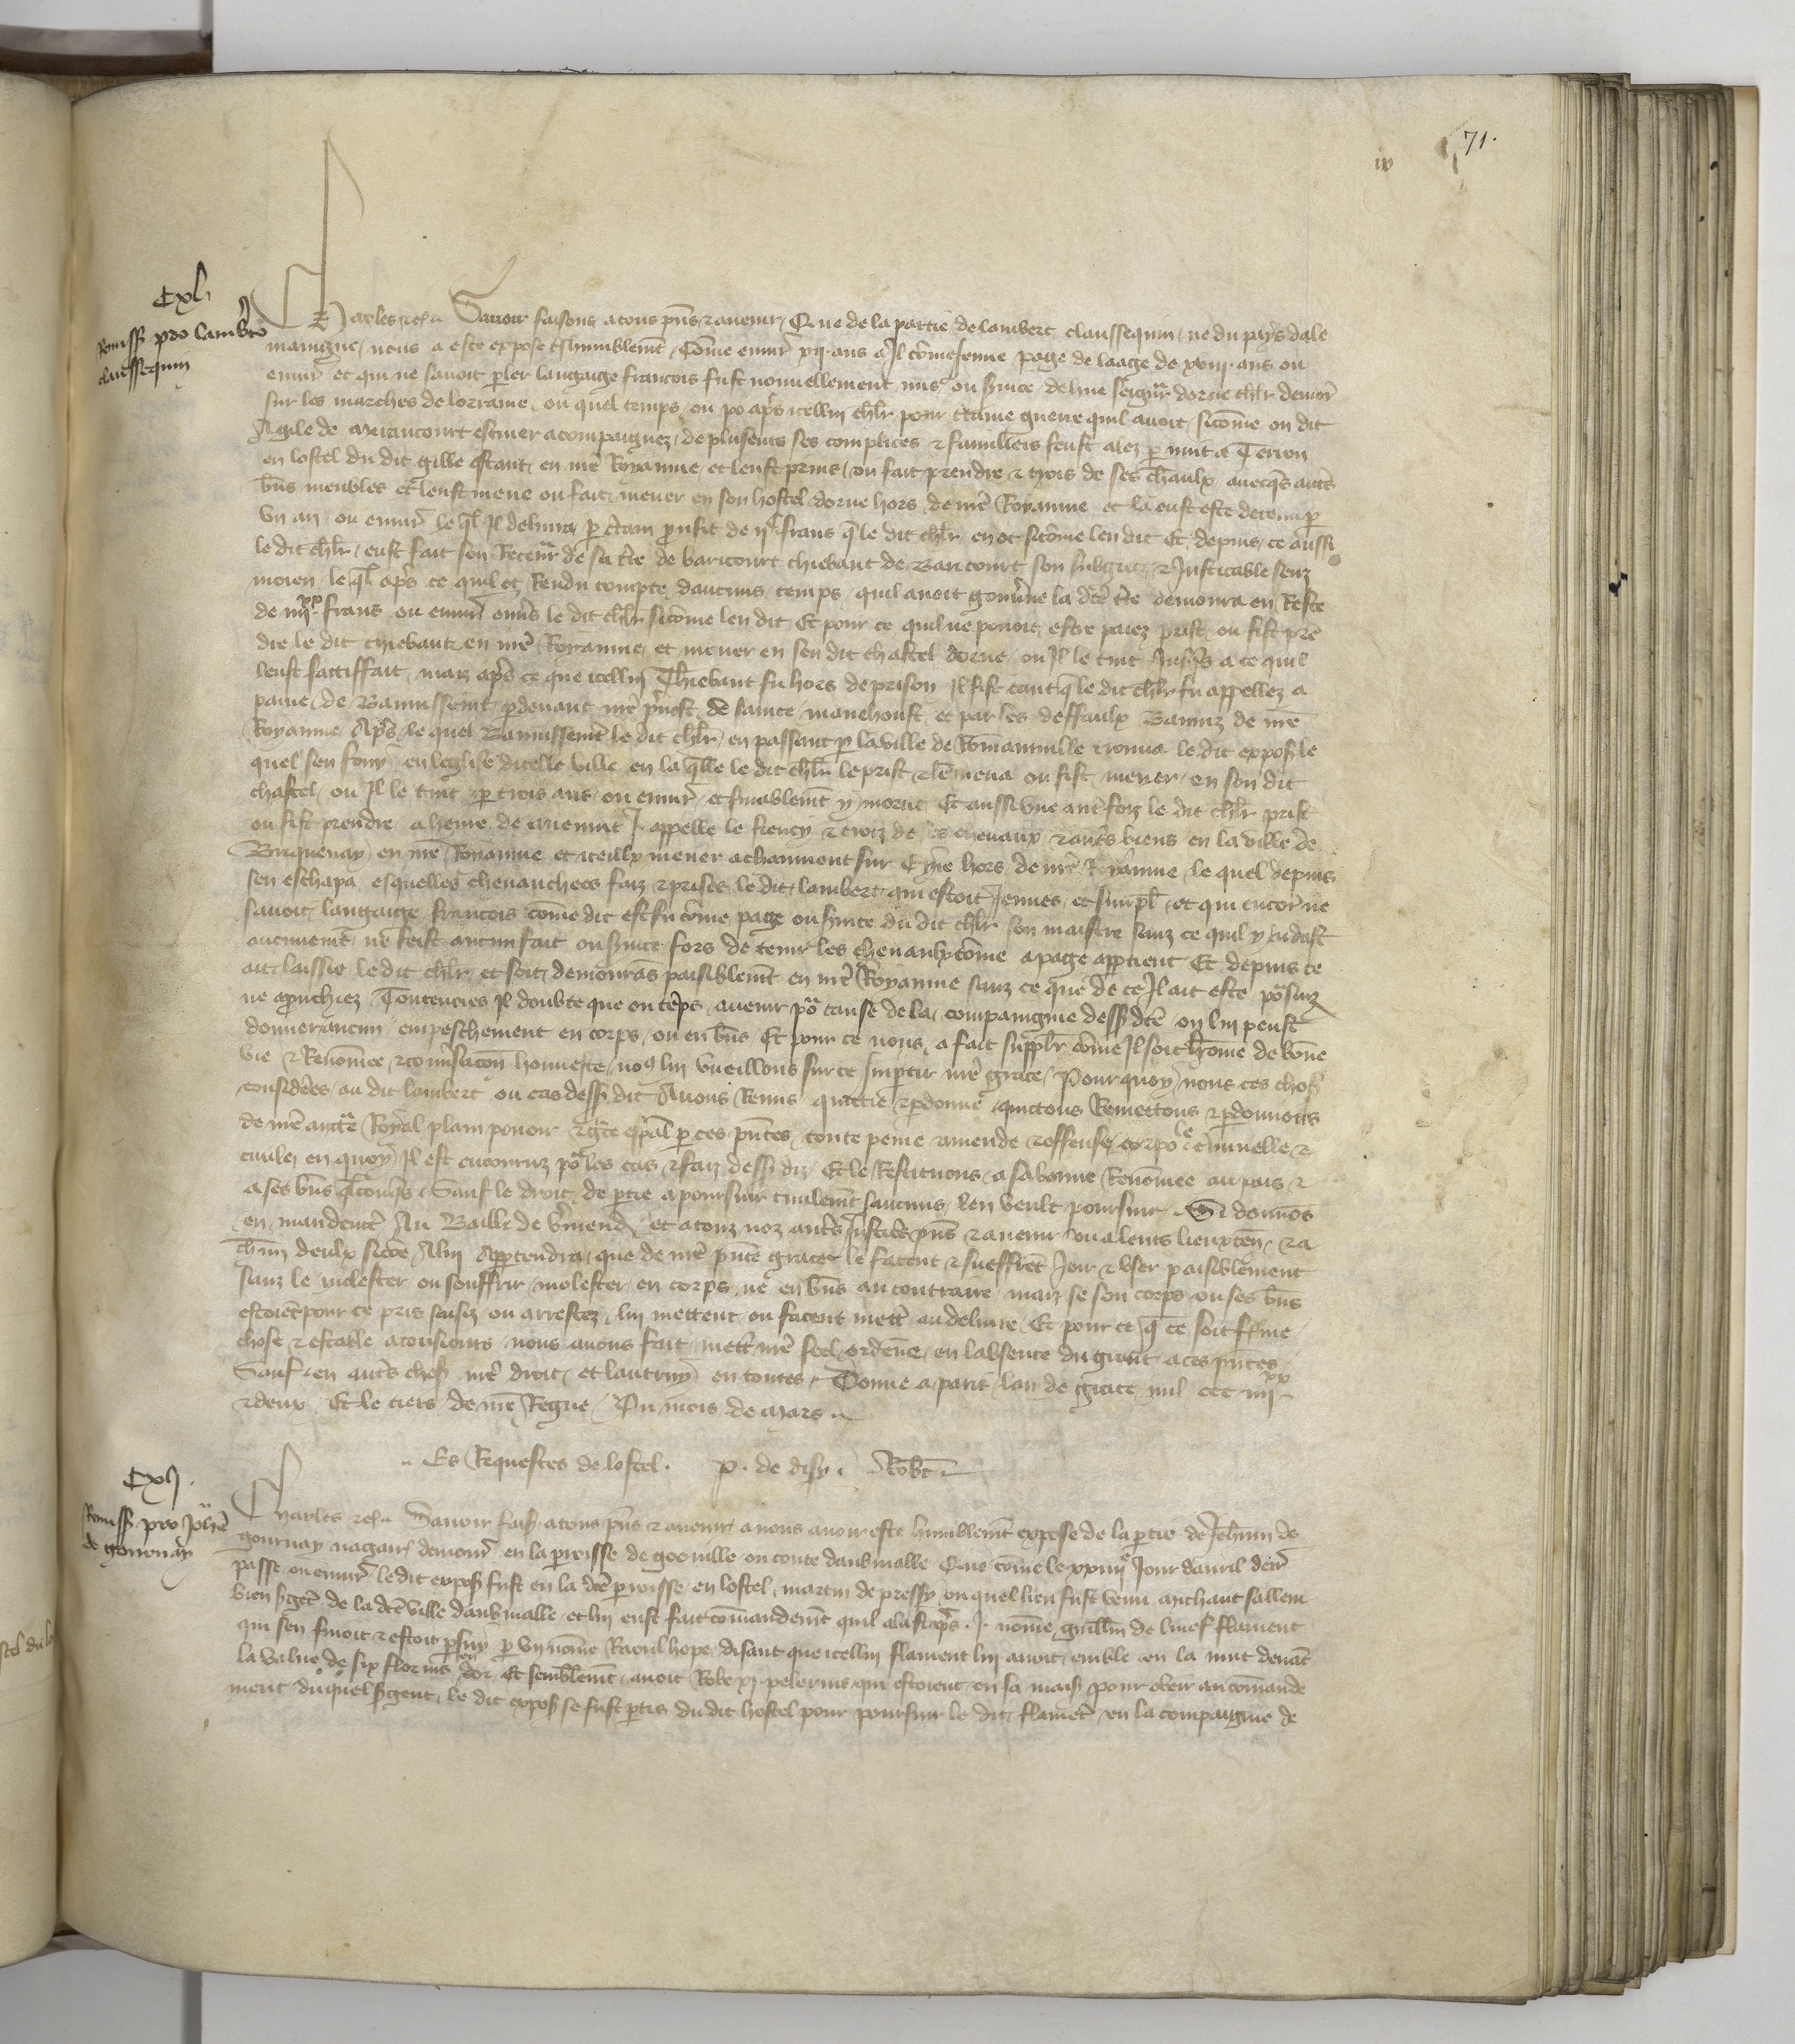 71.
ix
Cxl
Remiss pro Lamb'to
claussequin
Charles etc. Savoir faisons a tous p̄ns et avenir Que de la partie de lambert claussequin ne du pays dale
maingne nous a este expose t̄shumblemēt Com̄e envir̄ xij. ans a Il com̄e Jenne page de laage de xviij. ans ou
envir̄ et qui ne savoit p̄ler langaige francois fust nouvellement mis ou s̄vice de hue seigur̄ dorne chl̄r demor̄
sur les marches de lorraine, ou quel temps ou po ap̄s icellui chl̄r pour c̄taine guerre quil avoit sicom̄e on dit
A gile de Miraucourt escuier acompaignez de pluseurs ses complices et familliers feust alez p̄ nuit a Terron
en lostel du dit gille estant en nr̄e Royaume et leust prins ou fait prendre et trois de ses ch̄aulx avecq̄s aut̄s
b̄ns meubles et leust mene ou fait mener en son hostel dorne hors de nr̄e Royaume et la eust este detenu p̄
un an ou envir̄ le q̄l Il delivra p̄ c̄tain prufit de ijc frans q̄ le dit chl̄r en ot sicōme len dit Et depuis ce aussi
le dit chl̄r eust fait son Receūr de sa t̄re de baricourt thiebaut de Bancourt son subget et Justicable senz
moien, le q̄l ap̄s ce quil ot Rendu compte daucuns temps quil avoit gouv̄ne la dc̄e t̄re demoura en Reste
de iiijxx frans ou envir̄ envs le dit chl̄r sicōme len dit Et pour ce quil ne povoit estre paiez prist ou fist pren
dre le dit thiebaut en nr̄e Royaume et mener en son dit chastel dorne ou Il le tint Jusq̄s a ce quil
leust sattiffait, maiz ap̄s ce que icellui Thiebaut fu hors de prison Il fist tant q̄ le dit chl̄r fu appellez a
paine de Bannissemt p̄devant nr̄e p̄vost de sainte manehoust et par ses deffaulx Banniz de nr̄e
Royaume Ap̄s le quel Bannissemt̄ le dit chl̄r en passant p̄ la ville de Romanville trouva le dit expos̄ le
quel sen fouy en leglise dicelle ville en la q̄lle le dit chl̄r le prist et lē mena ou fist mener en son dit
chastel ou Il le tint p̄ trois ans ou envir̄ et finablemt̄ y morut Et aussi une aut̄e foiz le dit chl̄r prist
ou fist prendre a heure de mienuit J. appelle le frency et trois de ses chevaux et aut̄s biens en la ville de
Briquenay en nr̄e Royaume et iceulx mener a chaumont sur Eyre hors de nr̄e Royaume le quel depuis
sen eschapa esquelles chevauchees faiz et prises le dit lambert qui estoit Jennes et simpl̄ et qui encor̄ ne
savoit langaige francois com̄e dit est fu com̄e page ou s̄vice du dit chl̄r son maistre sanz ce quil y aidast
aucunemt̄ ne feist aucun fait ou s̄vice fors de tenir les chevaulx com̄e a page app̄tient Et depuis ce
ait laissie le dit chl̄r et soit demourās paisiblemt̄ en nr̄e Royaume sanz ce que de ce Il ait este poursuiz
ne aprouchiez Toutevoies Il doubte que ou tēps avenir por̄ cause de la compaignie dessus dc̄e on lui peust
donner aucun empeschement en corps ou en b̄ns Et pour ce nous a fait suppl̄r com̄e Il soit hom̄e de bon̄e
vie et Renom̄ee et conv̄sacōn honneste, no9 lui vueillons sur ce Imp̄tir nr̄e grace, Pourquoy nous ces chos̄
considerees au dit lambert ou cas dessus dit Avons Remis quittie et p̄donne quittons Remettons et p̄donnons
de nr̄e auct̄e Royal plain povoir et gr̄ce esp̄al p̄ ces p̄ntes, toute peine amende et offense corpolle c̄minelle et
civile en quoy Il est encouruz por̄ les cas et faiz dessus diz Et le Restituons a sa bonne Renom̄ee au pais et
a ses b̄ns q̄lconq̄s. Sauf le droit de p̄tie a poursuir civilemt̄ saucuns len veult poursuir. Si donnōs
en mandemt̄ Au Bailli de V̄mend̄ et a touz noz aut̄s Justic̄es p̄ns et avenir ou a leurs lieuxten̄ et a
ch̄un deulx sicōe A lui App̄tendra que de nr̄e p̄nte grace le facent et sueffrēt Joir et user paisiblement
sanz le molester ou souffrir molester en corps ne en b̄ns au contraire maiz se son corps ou ses b̄ns
estoiēt pour ce pris saisiz ou arrestez, lui mettent ou facent mett̄e au delivre Et pour ce q̄ ce soit f̄me
chose et estable a tousiours nous avons fait mett̄e nr̄e seel ordene en labsence du grant a ces p̄ntes
Sauf en aut̄s chos̄ nr̄e droit et lautruy en toutes. Donne a paris lan de grace mil ccc iiijxx
et deux Et le tiers de nr̄e Regne Ou mois de Mars.
Es Requestes de lostel. P. de disy. Rob̄t
Cxlj.
Remiss pro Joh̄e
de gournay
Charles etc. Savoir fais̄ a tous p̄ns et avenir a nous avoir este humblemt̄ expose de la p̄tie de Jeh̄nin de
gournay demour̄ en la p̄roisse de goouille ou conte daubmalle Que com̄e le xxiiije Jour davril derr̄
passe ou envir̄ le dit expos̄ fust en la dc̄e p̄roisse en lostel martin de pressy ou quel lieu fust venu michaut sallem
bien s̄gēt de la dc̄e ville daubmalle et lui eust fait com̄andemt̄ quil alast ap̄s. J. nom̄e guill̄m de lines flament
qui sen fuioit et estoit p̄suy p̄ un nom̄e Raoul hope disant que icellui flament lui avoit emble en la nuit devāt
la value de six florins dor Et semblemt̄ avoit Robe xj pelerins qui estoient en sa mais̄ pour obeir au com̄ande
ment du quel s̄gent, le dit expos̄ se fust p̄tis du dit hostel pour poursuir le dit flamēt en la compaignie de